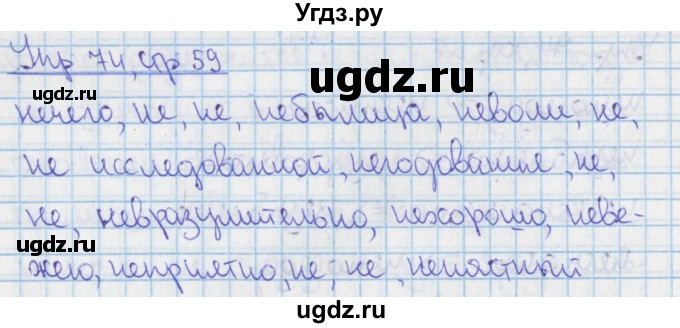 Угдз.ру
Упр 74, стр 59
ugdz.ru
нечего, не, не, небылица, неволи, не,
не исследованной, негодование, не,
ugdz.ru
не, невразумительно, нехорошо, неве-
ugdz.ru
жею, неприятно, не, не, ненастный
ugdz.ru